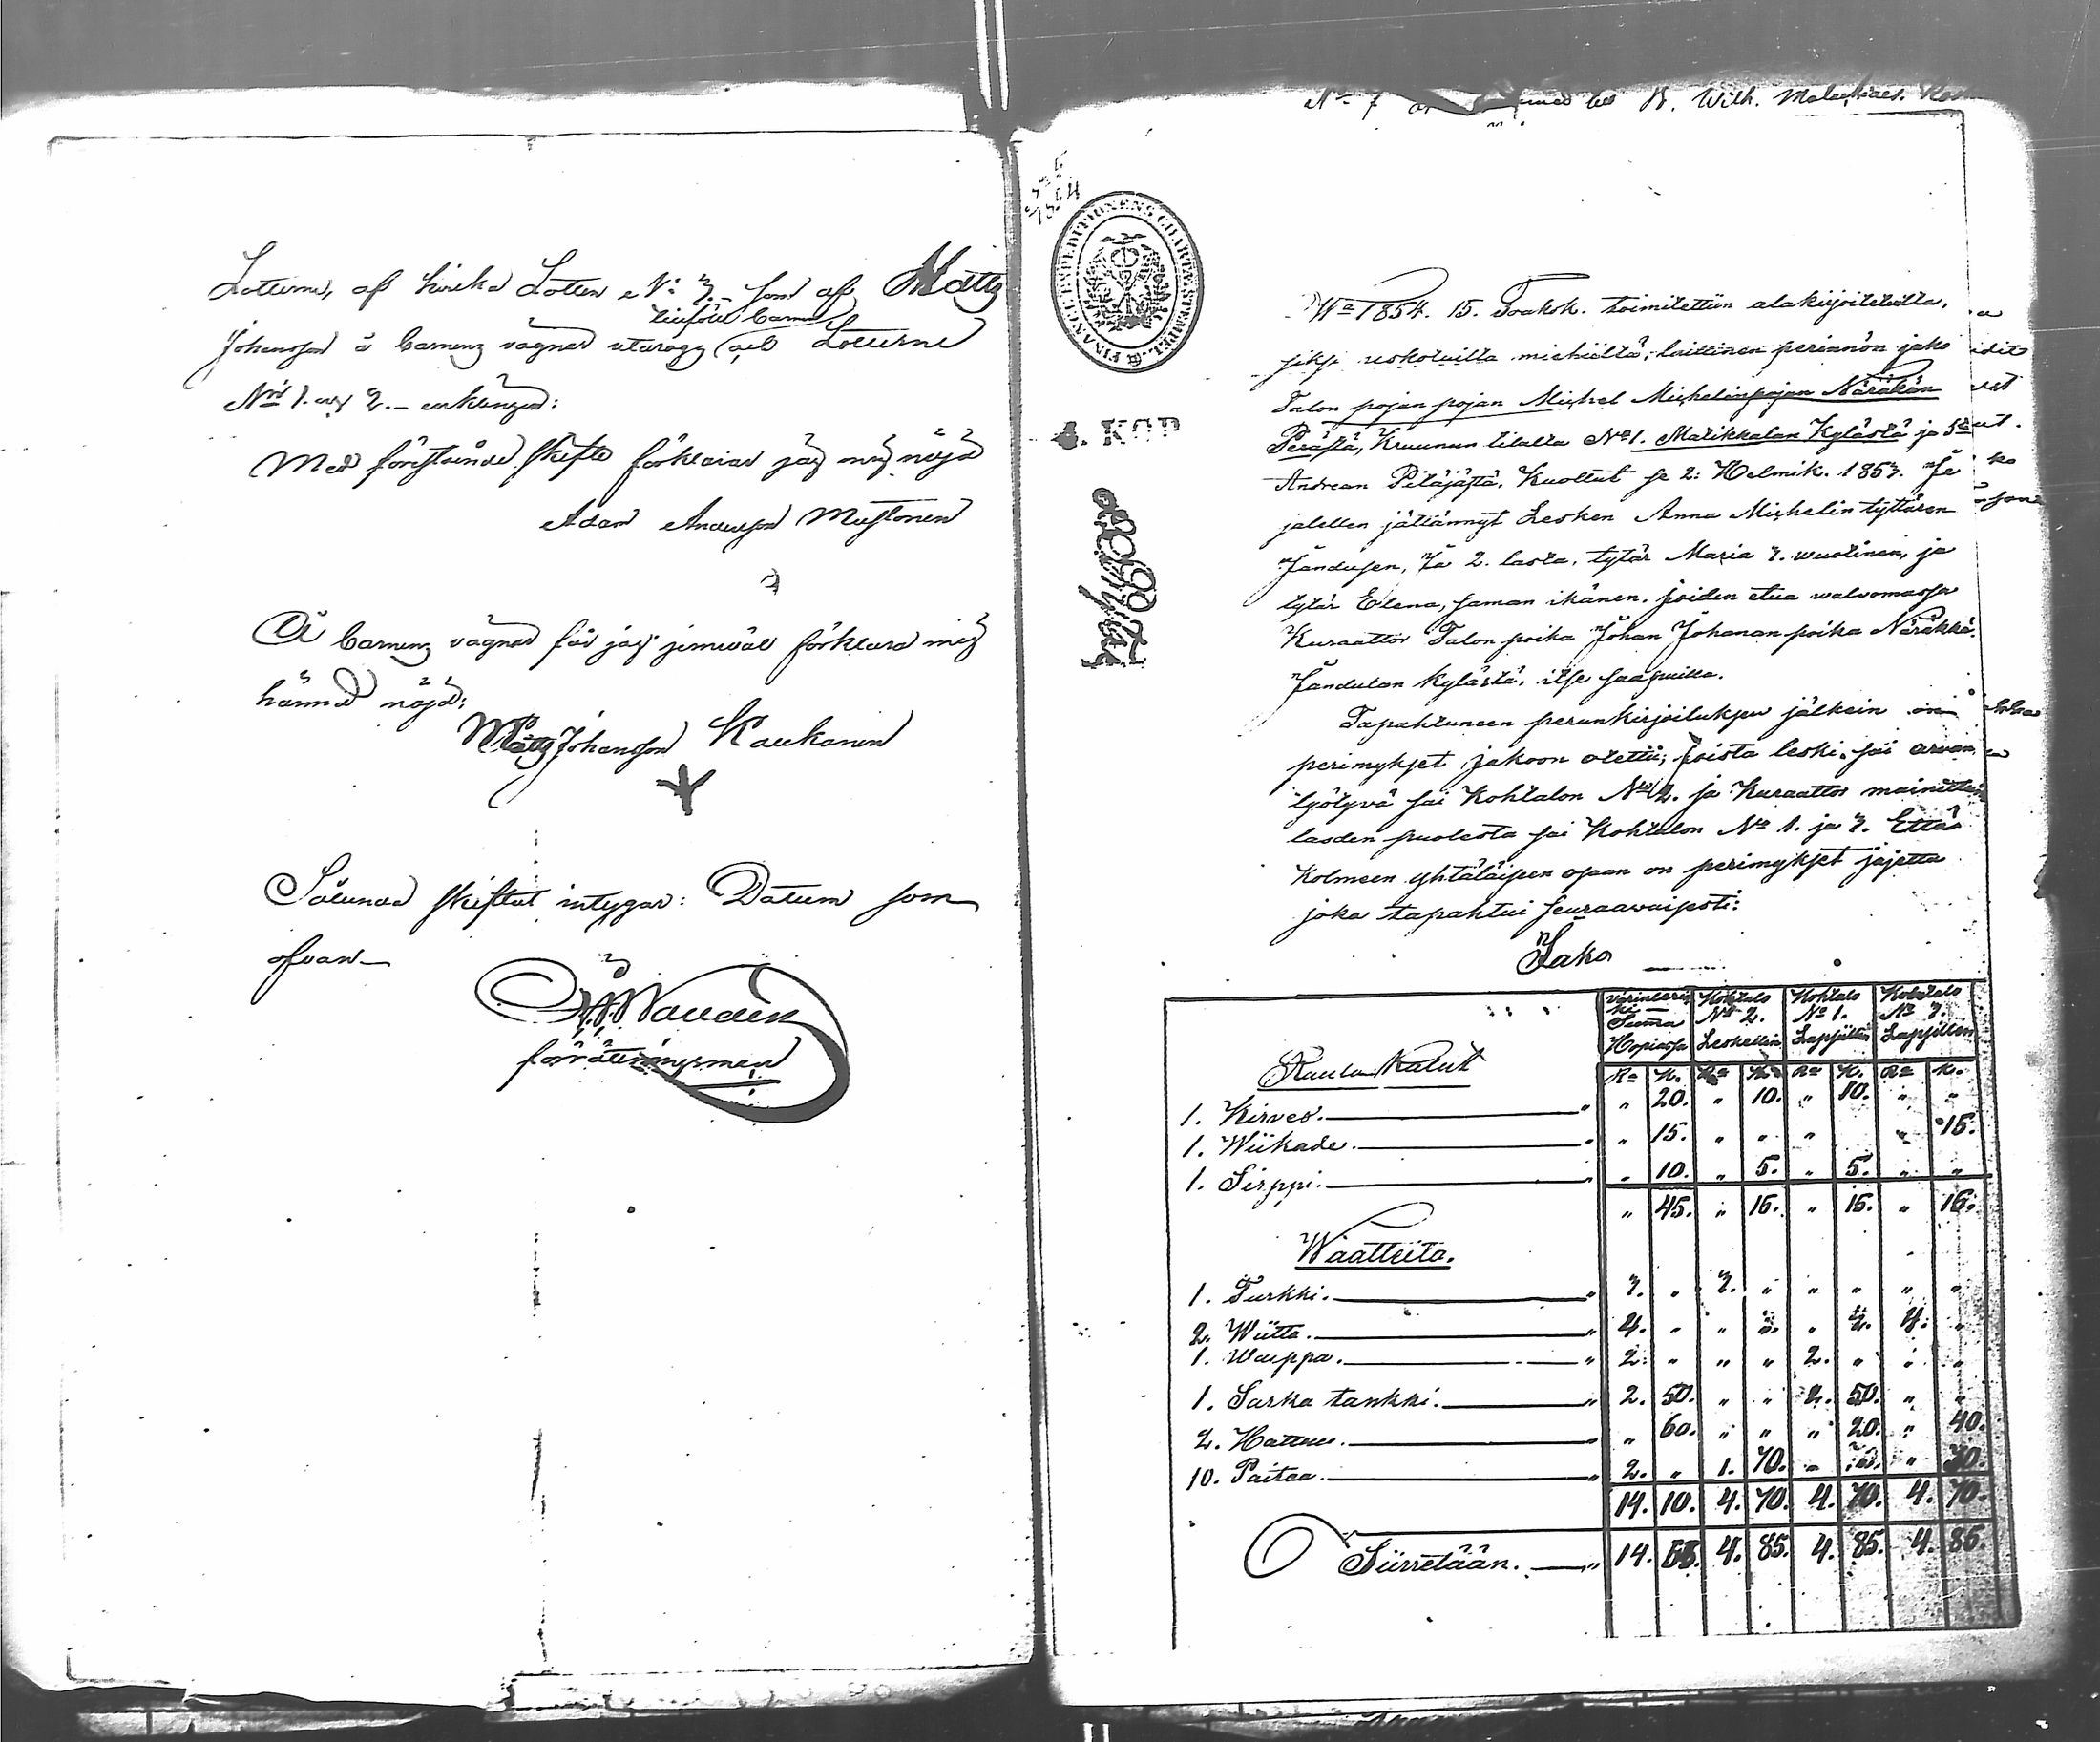 Lotterne, af hvilka Lotten N: 3. som af Matts
Johansson å barnens vägnar utdrogs tillföll barnen och Lotterne
N: 1. och 2. enklingen:
Med förestående skifte förklarar jag mig nöjd
Adam Andersson Mustonen
Å barnens vägnar får jag jemwäl förklara mig
härmed nöjd:
Matts Johansson Kaukanen
Sålunda skiftat intygar: Datum som
ofvan
förrättningsman
No 7
Wilh.
1854
FINANCE EXPEDITIONENS CHARTÆ STEMPEL
4. KOP
Wna 1854. 15. Toukok. toimitettiin alakirjoitetuilta,
siksi uskotuilta miehiltä, laillinen perinnön jako
Talon pojan pojan Michel Michelinpojan Näräkän
Perästä, Kruunun tilalta No 1. Matikkalan Kylästä ja St
Andrean Pitäjästä, Kuollut se 2: Helmik. 1853. Ja
jalellen jättännyt Lesken Anna Michelin tyttären
Jändusen, Ja 2. lasta, tytär Maria 3. wuotinen, ja
tytär Elena, saman ikänen. joiden etua walwomassa
Kuraattor Talon poika Johan Johanan poika Näräkkä.
Jändulan Kylästä, itse saapuilla.
Tapahtuneen perunkirjoituksen jälkein on
perimykset jakoon otettu; joista leski, sai arvan
lyötyvä sai Kohtalon No 2. ja Kuraattor mainittuin
lasden puolesta sai Kohtalon No 1. ja 3. Että
Kolmeen yhtäläisen osaan on perimykset jajettu
joka tapahtui seuraavaisesti:
Jako
Summa Hopiassa Kohtalo No 2. Leskellen Kohtalo No 1. Lapsillen Kohtalo No 3. Lapsillen
Rauta Kalut R K. R K. R K. R K.
1. Kirves. " 20. " 10. " 10. " "
1. Wiikade. " 15. " " " " 15.
1. Sirppi. " 10. " 5. " 5. " "
" 45. " 15. " 15. " 15.
Waatteita.
1. Turkki. 3. " 3. " " " " "
2. Wiitta. 4. " " " " " 4. "
1. Waippa. 2. " " " 2. " " "
1. Sarka tankki. 2. 50. " " 2. 50. " "
2. Hattua. " 60. " " " 20. " 40.
10. Paitaa. 2. " 1. 70. " " 30.
14. 10. 4. 70. 4. 70. 4. 70.
Siirretään. 14. 55. 4. 85. 4. 85. 4. 85.